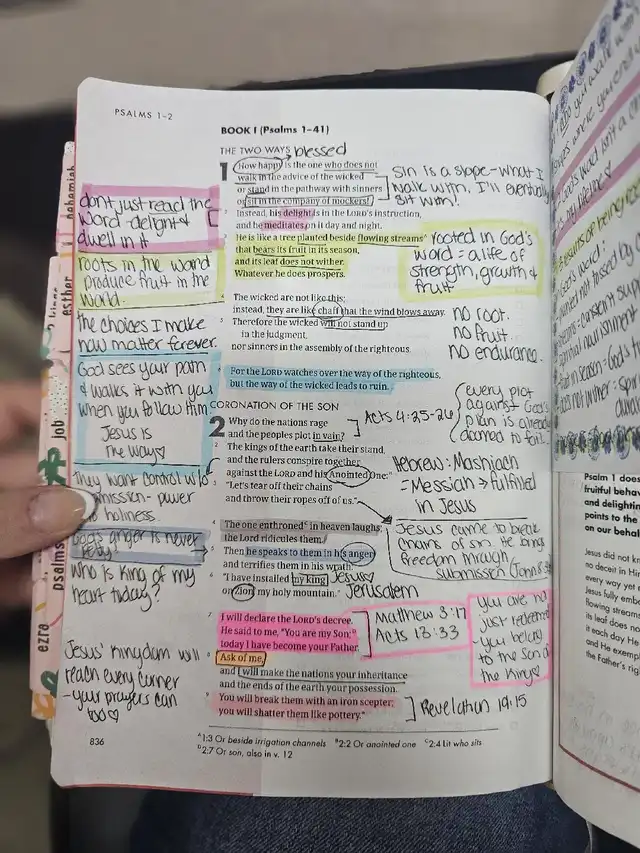 PSALMS 1–2
BOOK I (Psalms 1–41)
THE TWO WAYS
blessed
1 How happy is the one who does not
walk in the advice of the wicked
or stand in the pathway with sinners
or sit in the company of mockers!
2 Instead, his delight is in the LORD's instruction,
and he meditates on it day and night.
3 He is like a tree planted beside flowing streams A
that bears its fruit in its season,
and its leaf does not wither.
Whatever he does prospers.
4 The wicked are not like this;
instead, they are like chaff that the wind blows away.
5 Therefore the wicked will not stand up
in the judgment,
nor sinners in the assembly of the righteous.
6 For the LORD watches over the way of the righteous,
but the way of the wicked leads to ruin.
CORONATION OF THE SON
2 Why do the nations rage
and the peoples plot in vain?
2 The kings of the earth take their stand,
and the rulers conspire together
against the LORD and his Anointed One:
3 "Let's tear off their chains
and throw their ropes off of us."
4 The one enthroned in heaven laughs;
the Lord ridicules them.
5 Then he speaks to them in his anger
and terrifies them in his wrath:
6 "I have installed my king
on Zion, my holy mountain."
7 I will declare the LORD's decree.
He said to me, "You are my Son;
today I have become your Father.
8 Ask of me,
and I will make the nations your inheritance
and the ends of the earth your possession.
9 You will break them with an iron scepter;
you will shatter them like pottery."
836
A 1:3 Or beside irrigation channels B 2:2 Or anointed one C 2:4 Lit who sits
D 2:7 Or son, also in v. 12
don't just read the
word - delight &
dwell in it
roots in the word
produce fruit in the
world.
the choices I make
now matter forever.
God sees your path
& walks it with you
when you follow Him
Jesus is
the way
They want control w/o
submission - power
holiness.
God's anger is never
petty!
Who is King of my
heart today?
Jesus' Kingdom will
reach every corner
- your prayers can
too
sin is a slope - what I
walk with, I'll eventually
sit with!
rooted in God's
word = a life of
strength, growth &
fruit
no root.
no fruit.
no endurance.
Acts 4:25-26
every plot
against God's
plan is already
doomed to fail.
Hebrew: Mashiach
= Messiah → fulfilled
in Jesus
Jesus came to break
chains of sin. He brings
freedom through
submission (John 8
Jesus
Jerusalem
Matthew 3:17
Acts 13:33
you are not
just redeemed
- you belong
to the Son &
the King
Revelation 19:15
nehemiah
esther
job
psalms
ezra
Psalm 1 does
fruitful behav
and delighting
points to the
on our behal
Jesus did not
no deceit in Hi
every way yet
Jesus fully emb
flowing streams
its leaf does no
it each day He
and He exempl
the Father's rig